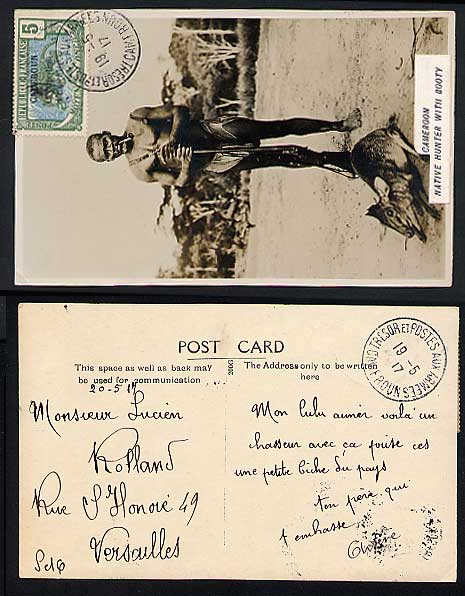 5
CAMEROUN
REPUBLIQUE FRANÇAISE
TRESOR ET POSTES AUX ARMEES
19-5
17
CAMEROON
NATIVE HUNTER WITH BOOTY
POST CARD
This space as well as back may
be used for communication
The Address only to be written
here
TRESOR ET POSTES AUX ARMEES
19-5
17
20-5 17
Monsieur Lucien
Rolland
Rue St Honoré 49
Versailles
Mon lulu aimer voilà un
chasseur avec ça ces
une petite biche du pays
ton père qui
t'embrasse